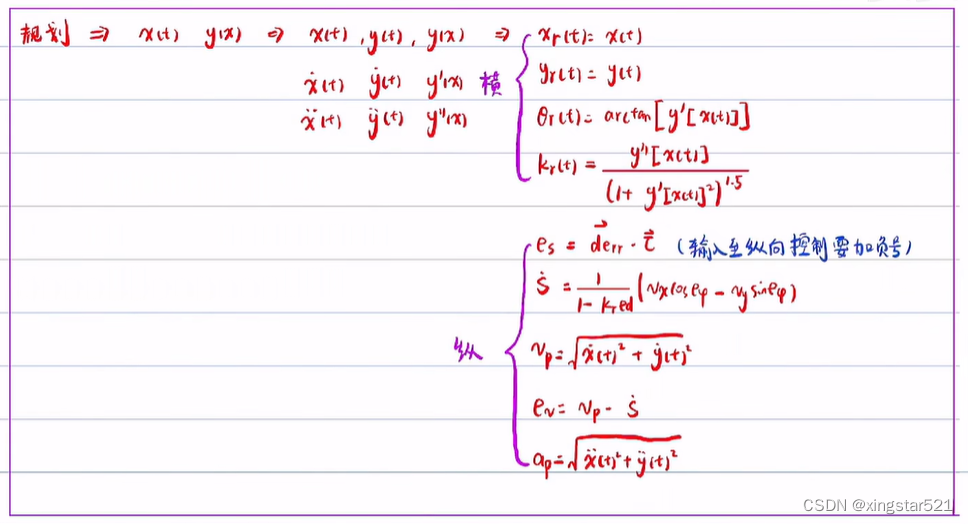 规划 ⇒ x(t) y(x) ⇒ x(t), y(t), y(x) ⇒
ẋ(t) ẏ(t) y'(x)
ẍ(t) ÿ(t) y''(x)
横
xr(t) = x(t)
yr(t) = y(t)
θr(t) = arctan[y'[x(t)]]
kr(t) = y''[x(t)] / (1 + y'[x(t)]²)^1.5
纵
es = d⃗err · τ⃗ (输入至纵向控制要加负号)
ṡ = 1 / (1 - kr ed) (vx cos eφ - vy sin eφ)
vp = √(ẋ(t)² + ẏ(t)²)
ev = vp - ṡ
ap = √(ẍ(t)² + ÿ(t)²)
CSDN @xingstar521